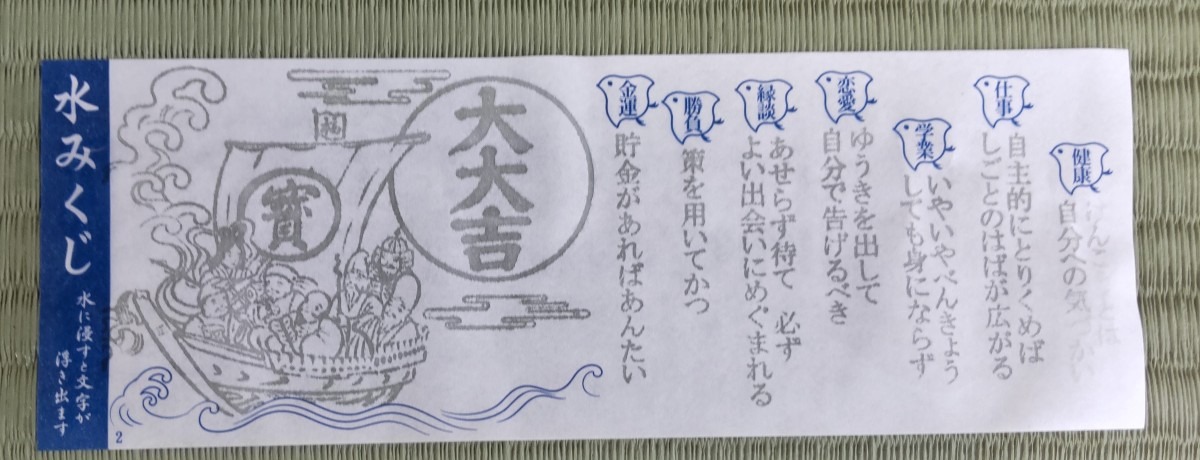 水みくじ
水に浸すと文字が
浮き出ます
2
大大吉
寶
健康
自分への気づかい
仕事
自主的にとりくめば
しごとのはばが広がる
学業
いやいやべんきょう
しても身にならず
恋愛
ゆうきを出して
自分で告げるべき
縁談
あせらず待て 必ず
よい出会いにめぐまれる
勝負
策を用いてかつ
金運
貯金があればあんたい